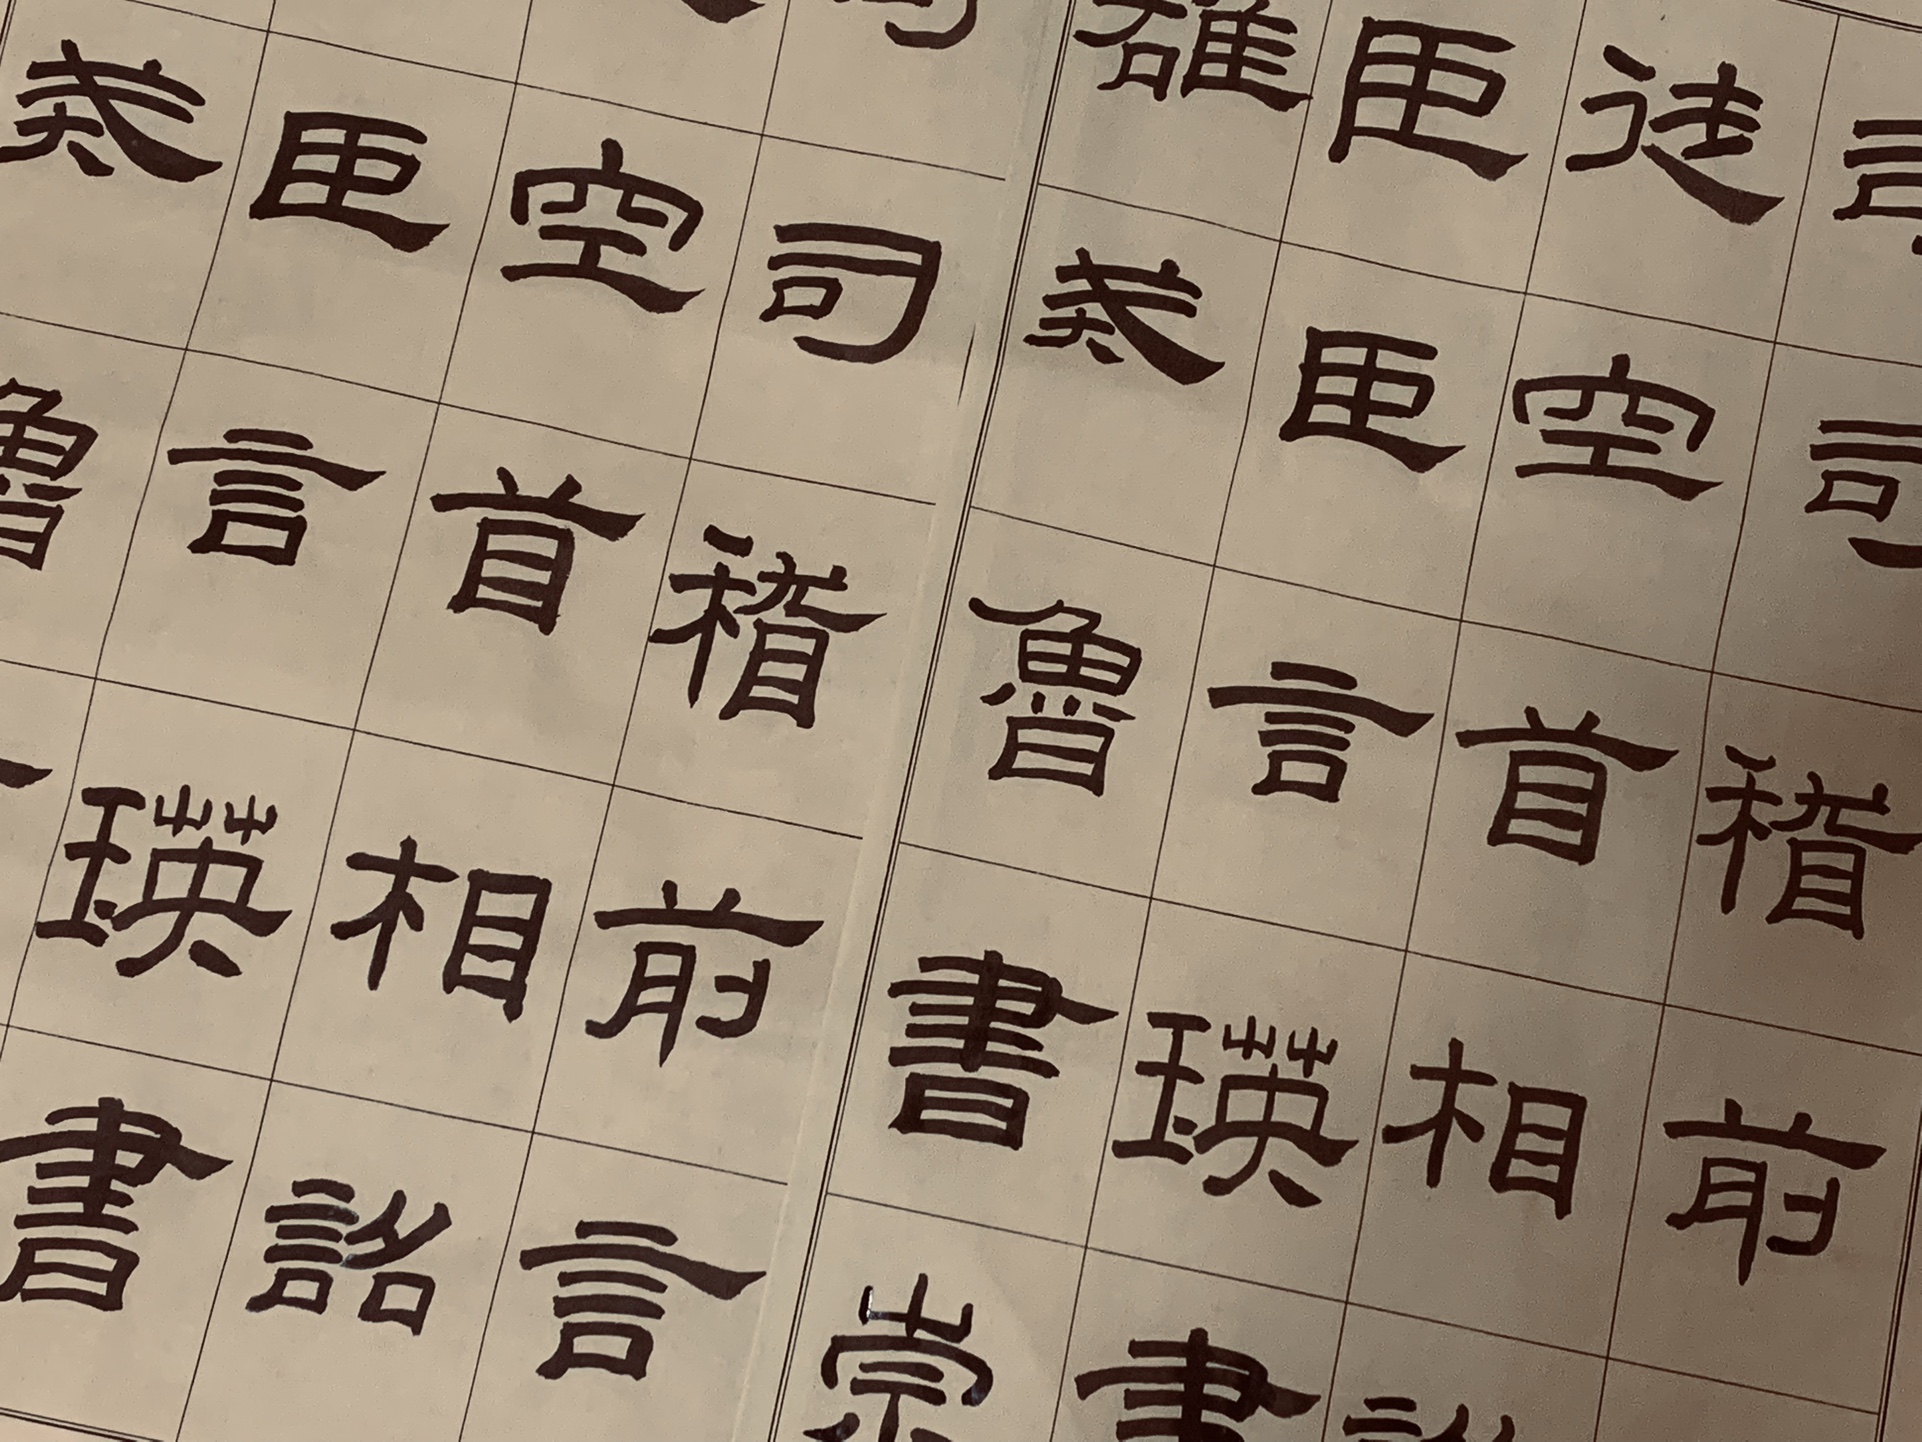 司徒臣雄
司空臣戒
稽首言魯
前相瑛書
詔書崇
司
司空臣戒
稽首言魯
前相瑛
言詔書